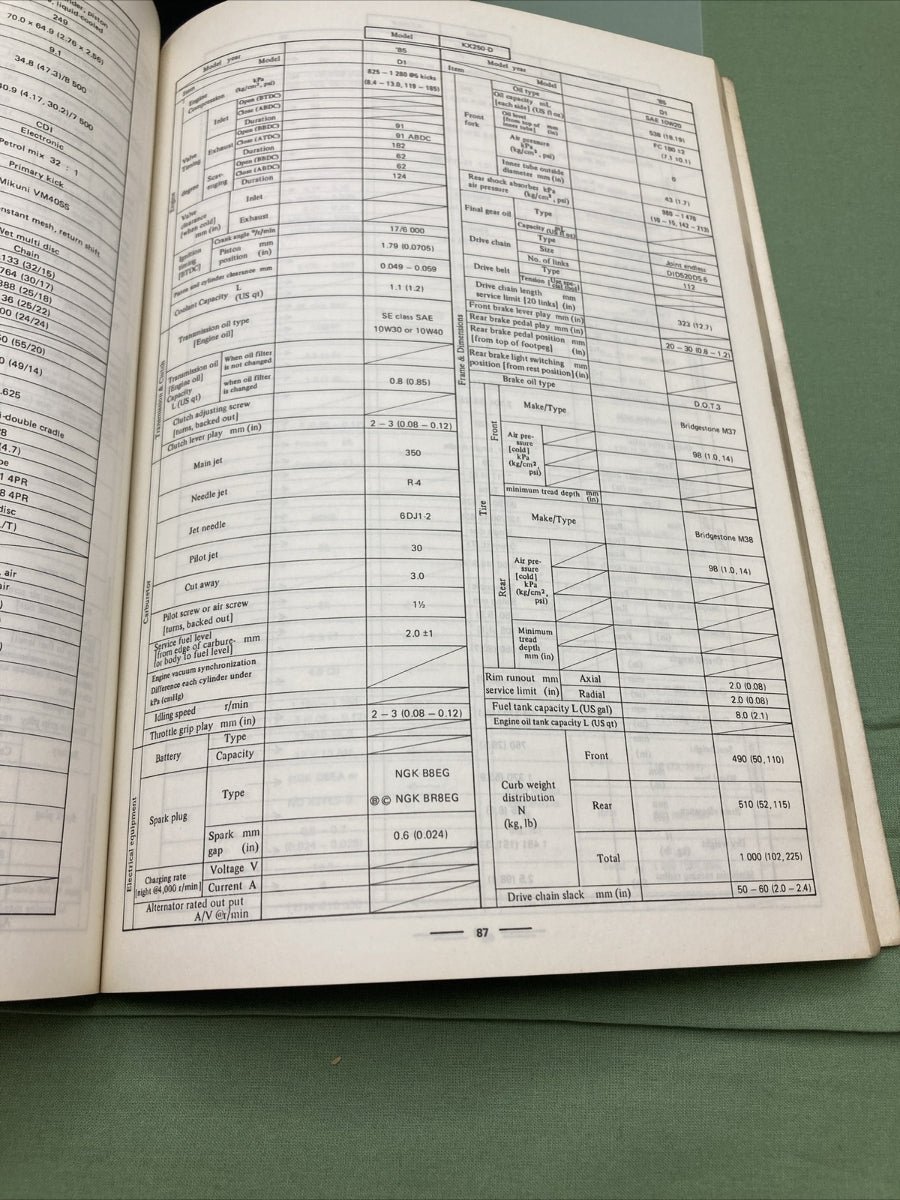 der, piston
liquid-cooled
249
70.0 x 64.9 (2.76 x 2.56)
9.1
34.8 (47.3)/8 500
(4.17, 30.2)/7 500
CDI
Electronic
Petrol mix 32 : 1
Primary kick
Mikuni VM40SS
nstant mesh, return shift
Wet multi disc
Chain
.133 (32/15)
764 (30/17)
388 (25/18)
36 (25/22)
00 (24/24)
50 (55/20)
0 (49/14)
.625
i-double cradle
4.7)
1 4PR
8 4PR
disc
/T)
air
air
Model KX250-D
Item Model year Model '85 D1
Engine Compression kPa (kg/cm², psi) 825 – 1 280 @5 kicks (8.4 – 13.0, 119 – 185)
Valve Timing degree
Inlet Open (BTDC)
Close (ABDC)
Duration
Exhaust Open (BBDC) 91
Close (ATDC) 91 ABDC
Duration 182
Scavenging Open (BBDC) 62
Close (ABDC) 62
Duration 124
Valve clearance [when cold] mm (in) Inlet
Exhaust
Ignition timing [BTDC] Crank angle °/r/min 17/6 000
Piston position mm (in) 1.79 (0.0705)
Piston and cylinder clearance mm 0.049 – 0.059
Coolant Capacity L (US qt) 1.1 (1.2)
Transmission & Clutch
Transmission oil type [Engine oil] SE class SAE 10W30 or 10W40
Transmission oil [Engine oil] Capacity L (US qt) When oil filter is not changed
when oil filter is changed 0.8 (0.85)
Clutch adjusting screw [turns, backed out]
Clutch lever play mm (in) 2 – 3 (0.08 – 0.12)
Carburetor
Main jet 350
Needle jet R-4
Jet needle 6DJ1-2
Pilot jet 30
Cut away 3.0
Pilot screw or air screw [turns, backed out] 1½
Service fuel level [from edge of carbure- tor body to fuel level] mm 2.0 ±1
Engine vacuum synchronization
Difference each cylinder under
kPa (cmHg)
Idling speed r/min
Throttle grip play mm (in) 2 – 3 (0.08 – 0.12)
Electrical equipment
Battery Type
Capacity
Spark plug Type NGK B8EG
Ⓑ Ⓒ NGK BR8EG
Spark gap mm (in) 0.6 (0.024)
Charging rate [night @4,000 r/min] Voltage V
Current A
Alternator rated out put A/V @r/min
Item Model year Model '85 D1
Frame & Dimensions
Front fork Oil type SAE 10W20
Oil capacity mL [each side] (US fl oz)
Oil level [from top of inner tube] mm (in)
Air pressure kPa (kg/cm², psi) 0
Inner tube outside diameter mm (in) 43 (1.7)
Rear shock absorber air pressure kPa (kg/cm², psi)
Final gear oil Type
Capacity mL (US fl oz)
Drive chain Type Joint endless
Size
No. of links 112
Drive belt Type
Tension
Drive chain length service limit [20 links] mm (in) 323 (12.7)
Front brake lever play mm (in)
Rear brake pedal play mm (in) 20 – 30 (0.8 – 1.2)
Rear brake pedal position [from top of footpeg] mm (in)
Rear brake light switching position [from rest position] mm (in)
Brake oil type D.O.T.3
Tire
Front Make/Type Bridgestone M37
Air pre- ssure [cold] kPa (kg/cm², psi) 98 (1.0, 14)
minimum tread depth mm (in)
Rear Make/Type Bridgestone M38
Air pre- ssure [cold] kPa (kg/cm², psi) 98 (1.0, 14)
Minimum tread depth mm (in)
Rim runout service limit mm (in) Axial 2.0 (0.08)
Radial 2.0 (0.08)
Fuel tank capacity L (US gal) 8.0 (2.1)
Engine oil tank capacity L (US qt)
Curb weight distribution N (kg, lb) Front 490 (50, 110)
Rear 510 (52, 115)
Total 1 000 (102, 225)
Drive chain slack mm (in) 50 – 60 (2.0 – 2.4)
87